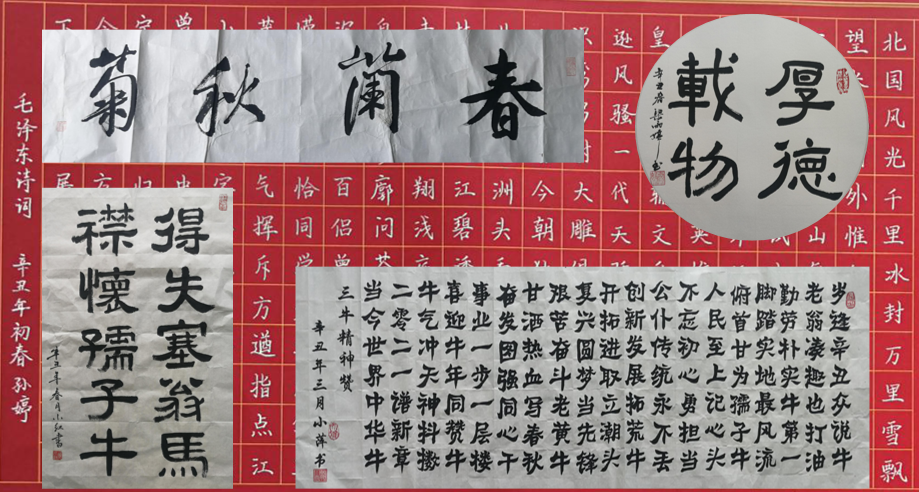 北国风光千里冰封万里雪飘
望
外惟
逊风骚一代天
大雕
今朝
洲头
江碧
翔浅
廓问
百侣
恰同
气挥斥方遒指点江
毛泽东诗词 辛丑年初春 孙婷
春蘭秋菊
厚德
載物
辛丑春
得失塞翁馬
襟懷孺子牛
辛丑年春月小红書
岁逢辛丑众说牛
老翁凑趣也打油
勤劳朴实牛第一
脚踏实地最风流
俯首甘为孺子牛
人民至上记心头
不忘初心勇担当
公仆传统永不丢
创新发展拓荒牛
开拓进取立潮头
复兴圆梦当先锋
艰苦奋斗老黄牛
甘洒热血写春秋
奋发图强同心干
事业一步一层楼
喜迎牛年同赞牛
牛气冲天神抖擞
二零二一谱新章
当今世界中华牛
三牛精神赞
辛丑年三月小萍书